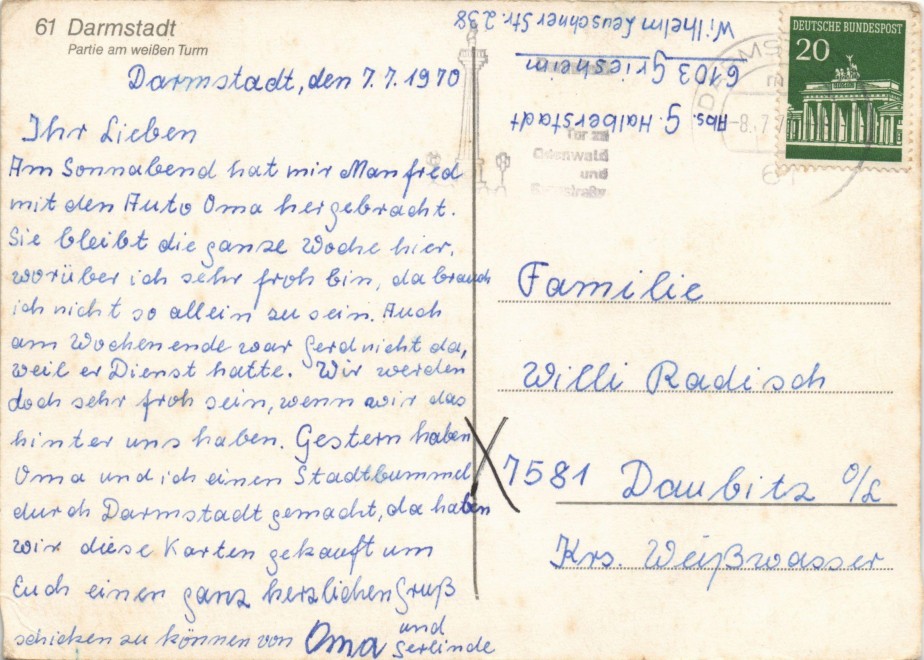 61 Darmstadt
Partie am weißen Turm
Darmstadt, den 7.7.1970
Ihr Lieben
Am Sonnabend hat mir Manfred
mit den Auto Oma hergebracht.
Sie bleibt die ganze Woche hier,
worüber ich sehr froh bin, da brauch
ich nicht so allein zu sein. Auch
am Wochenende war Gerd nicht da,
weil er Dienst hatte. Wir werden
doch sehr froh sein, wenn wir das
hinter uns haben. Gestern haben
Oma und ich einen Stadtbummel
durch Darmstadt gemacht, da haben
wir diese Karten gekauft um
Euch einen ganz herzlichen Gruß
schicken zu können von Oma und
Gerlinde
Abs. G. Halberstadt
6103 Griesheim
Wilhelm Leuschner Str. 238
DEUTSCHE BUNDESPOST
20
-8.-7.7
61
Tor zu
Odenwald
und
Familie
Willi Radisch
7581 Daubitz O/L
Krs. Weißwasser